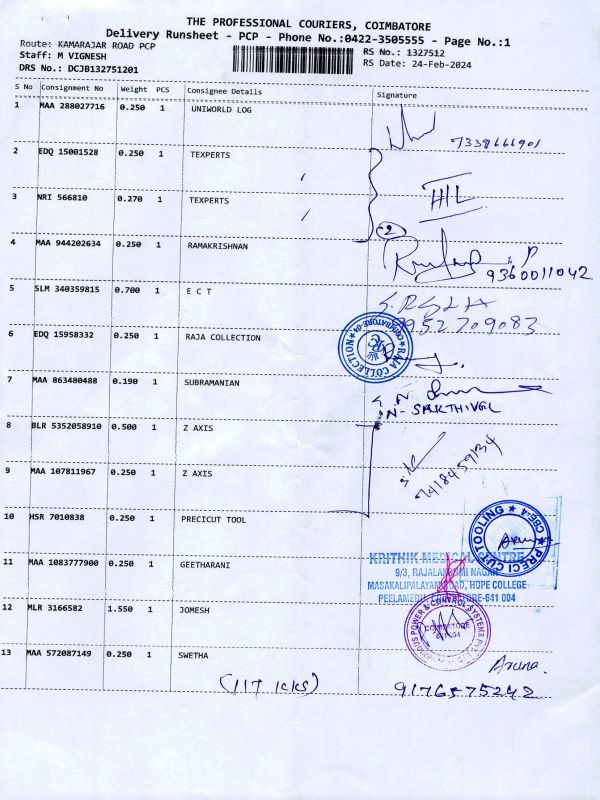 THE PROFESSIONAL COURIERS, COIMBATORE
Delivery Runsheet - PCP - Phone No.:0422-3505555 - Page No.:1
Route: KAMARAJAR ROAD PCP
RS No.: 1327512
Staff: M VIGNESH
RS Date: 24-Feb-2024
DRS No.: DCJB132751201
S No Consignment No Weight PCS Consignee Details Signature
1 MAA 288027716 0.250 1 UNIWORLD LOG
7338666901
2 EDQ 15001528 0.250 1 TEXPERTS
3 NRI 566810 0.270 1 TEXPERTS
2
4 MAA 944202634 0.250 1 RAMAKRISHNAN
9360011042
5 SLM 340359815 0.700 1 E C T
9952709083
6 EDQ 15958332 0.250 1 RAJA COLLECTION
RAJA COLLECTION
7 MAA 863480488 0.190 1 SUBRAMANIAN
N- SAKTHIVEL
8 BLR 5352058910 0.500 1 Z AXIS
9 MAA 107811967 0.250 1 Z AXIS
7418459134
10 HSR 7010838 0.250 1 PRECICUT TOOL
PRECI CUT TOOLING CBE-4
11 MAA 1083777900 0.250 1 GEETHARANI
KRITHIK MEDICAL CENTRE
9/3, RAJALAKSHMI NAGAR
MASAKALIPALAYAM ROAD, HOPE COLLEGE
PEELAMEDU, COIMBATORE-641 004
12 MLR 3166582 1.550 1 JOMESH
POWER & CONTROL SYSTEMS
COIMBATORE
641 004
13 MAA 572087149 0.250 1 SWETHA
Aruna
(11T icks)
9176575242